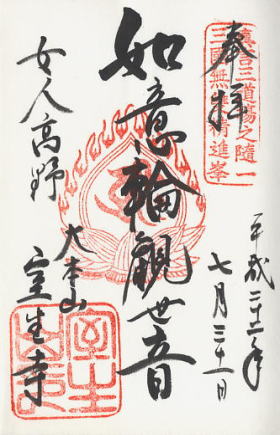 眞言三道場之隨一
三國無雙精進峯
奉拝
平成二十二年
七月三十一日
如意輪觀世音
大本山
室生寺
女人高野